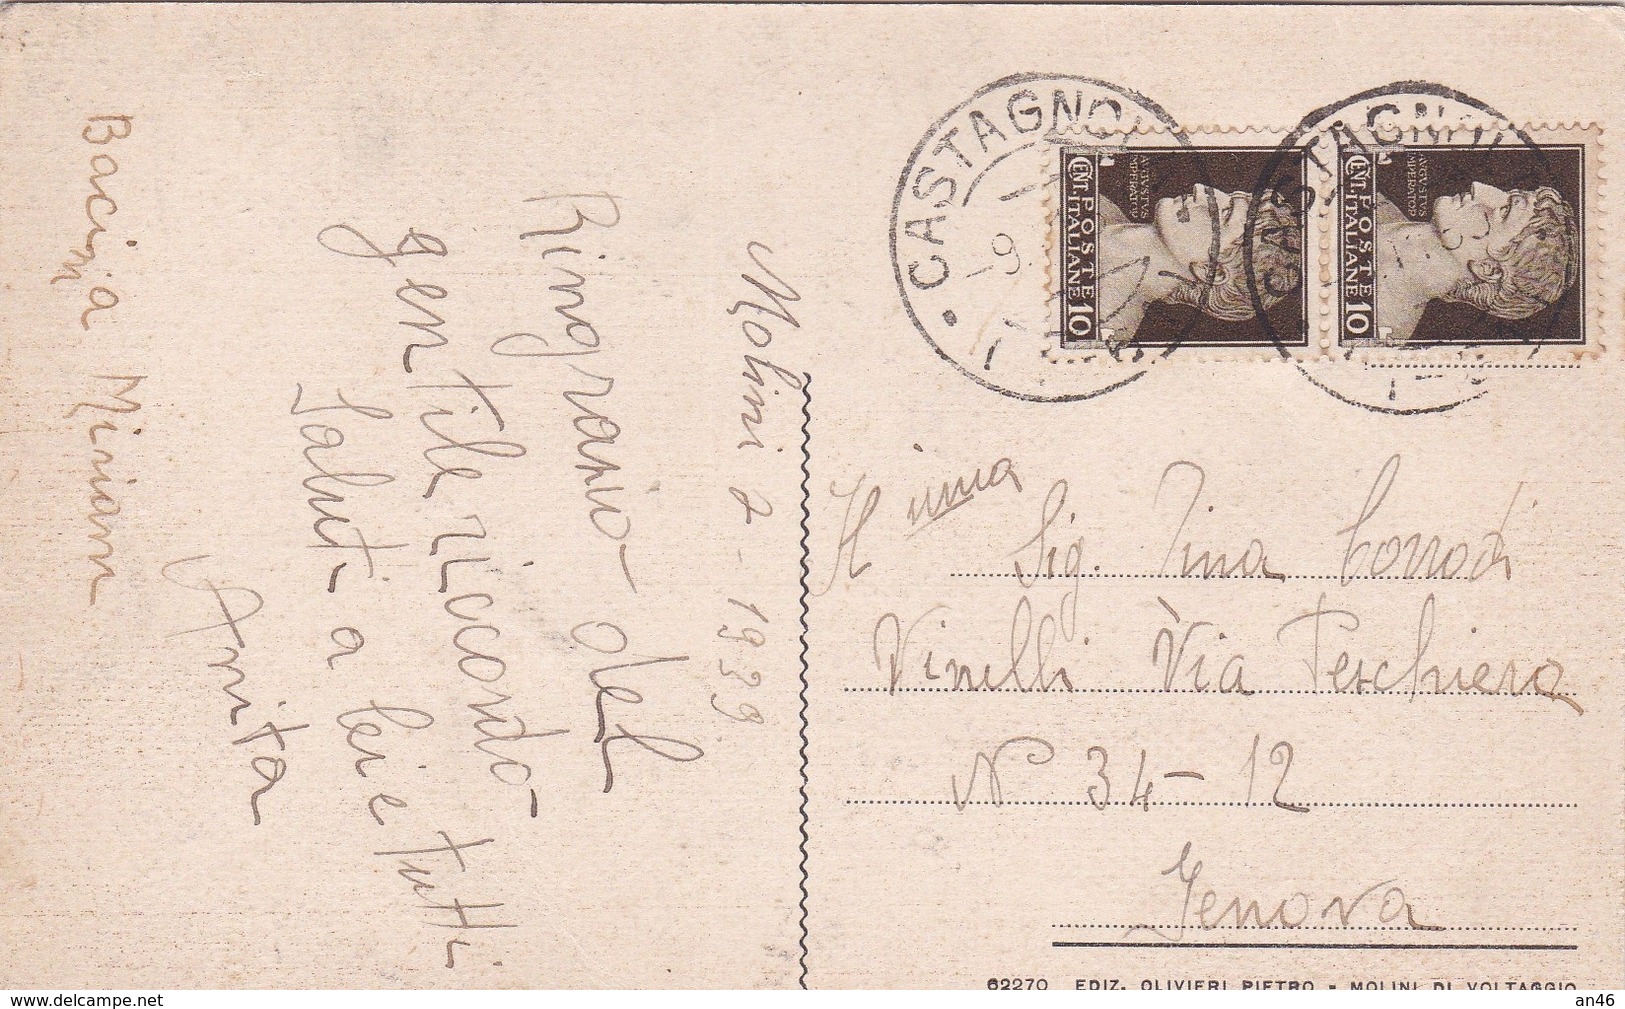 Molini 2-1939
Ringrazio del
gentile ricordo
Saluti a lei e tutti
Anita
Bacini a Miriam
CASTAGNOLA
CASTAGNOLA
9
CENT. 10
POSTE
ITALIANE
AVGVSTVS
IMPERATOR
CENT. 10
POSTE
ITALIANE
AVGVSTVS
IMPERATOR
Ill ima
Sig. Tina Corrodi
Vinelli Via Peschiera
N° 34-12
Genova
62270 EDIZ. OLIVIERI PIETRO - MOLINI DI VOLTAGGIO
delcampe.net
an46